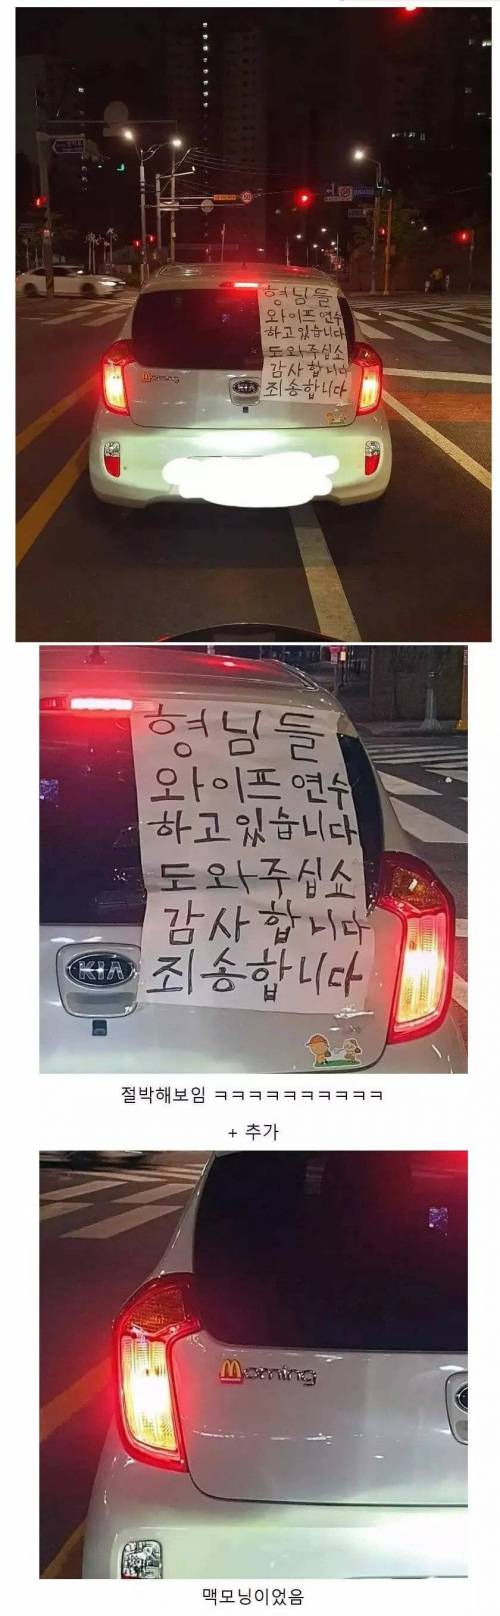 형님들
와이프 연수
하고 있습니다
도와주십쇼
감사합니다
죄송합니다
Morning
KIA
형님들
와이프 연수
하고 있습니다
도와주십쇼
감사합니다
죄송합니다
KIA
절박해보임 ㅋㅋㅋㅋㅋㅋㅋㅋㅋㅋ
+ 추가
Morning
맥모닝이었음